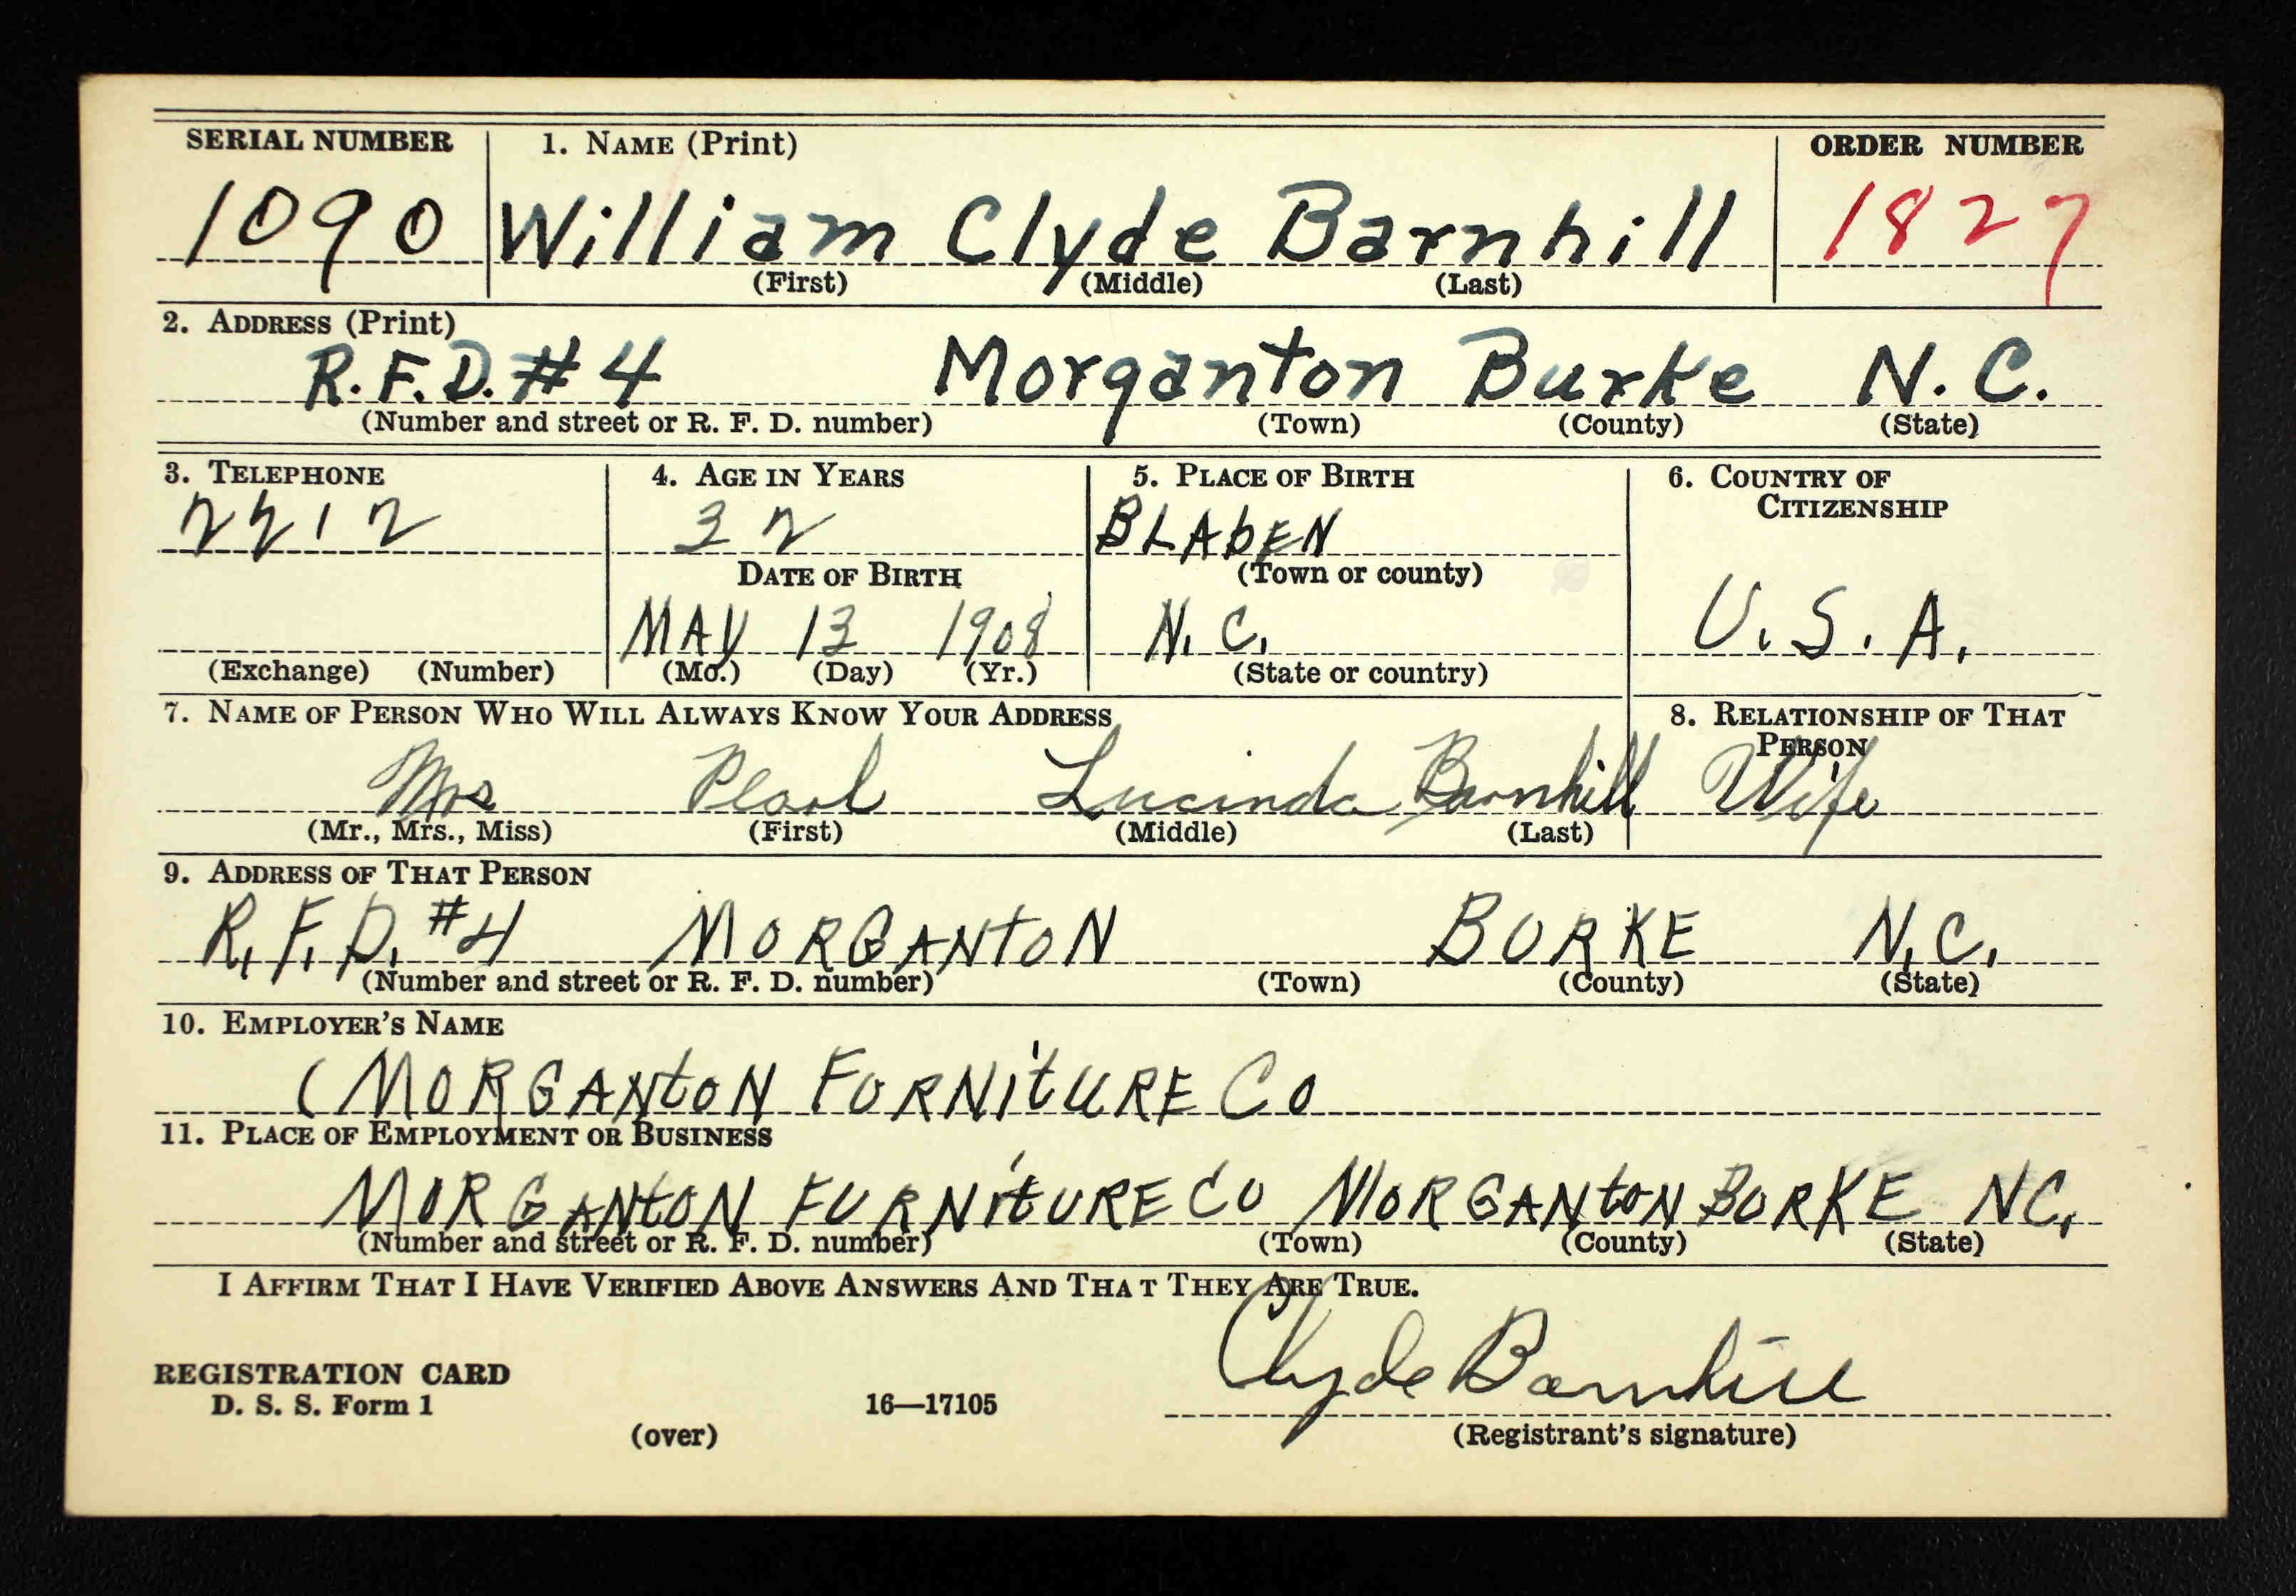 SERIAL NUMBER 1. NAME (Print) ORDER NUMBER
1090 William Clyde Barnhill 1827
(First) (Middle) (Last)
2. ADDRESS (Print)
R.F.D. #4 Morganton Burke N.C.
(Number and street or R. F. D. number) (Town) (County) (State)
3. TELEPHONE 4. AGE IN YEARS 5. PLACE OF BIRTH 6. COUNTRY OF
CITIZENSHIP
2212 32 BLADEN
DATE OF BIRTH (Town or county)
MAY 13 1908 N.C. U.S.A.
(Exchange) (Number) (Mo.) (Day) (Yr.) (State or country)
7. NAME OF PERSON WHO WILL ALWAYS KNOW YOUR ADDRESS 8. RELATIONSHIP OF THAT
PERSON
Mrs Pearl Lucinda Barnhill Wife
(Mr., Mrs., Miss) (First) (Middle) (Last)
9. ADDRESS OF THAT PERSON
R.F.D. #4 MORGANTON BURKE N.C.
(Number and street or R. F. D. number) (Town) (County) (State)
10. EMPLOYER'S NAME
(MORGANTON FURNITURE CO
11. PLACE OF EMPLOYMENT OR BUSINESS
MORGANTON FURNITURE CO MORGANTON BURKE NC.
(Number and street or R. F. D. number) (Town) (County) (State)
I AFFIRM THAT I HAVE VERIFIED ABOVE ANSWERS AND THAT THEY ARE TRUE.
Clyde Barnhill
REGISTRATION CARD
D. S. S. Form 1 16—17105
(over) (Registrant's signature)